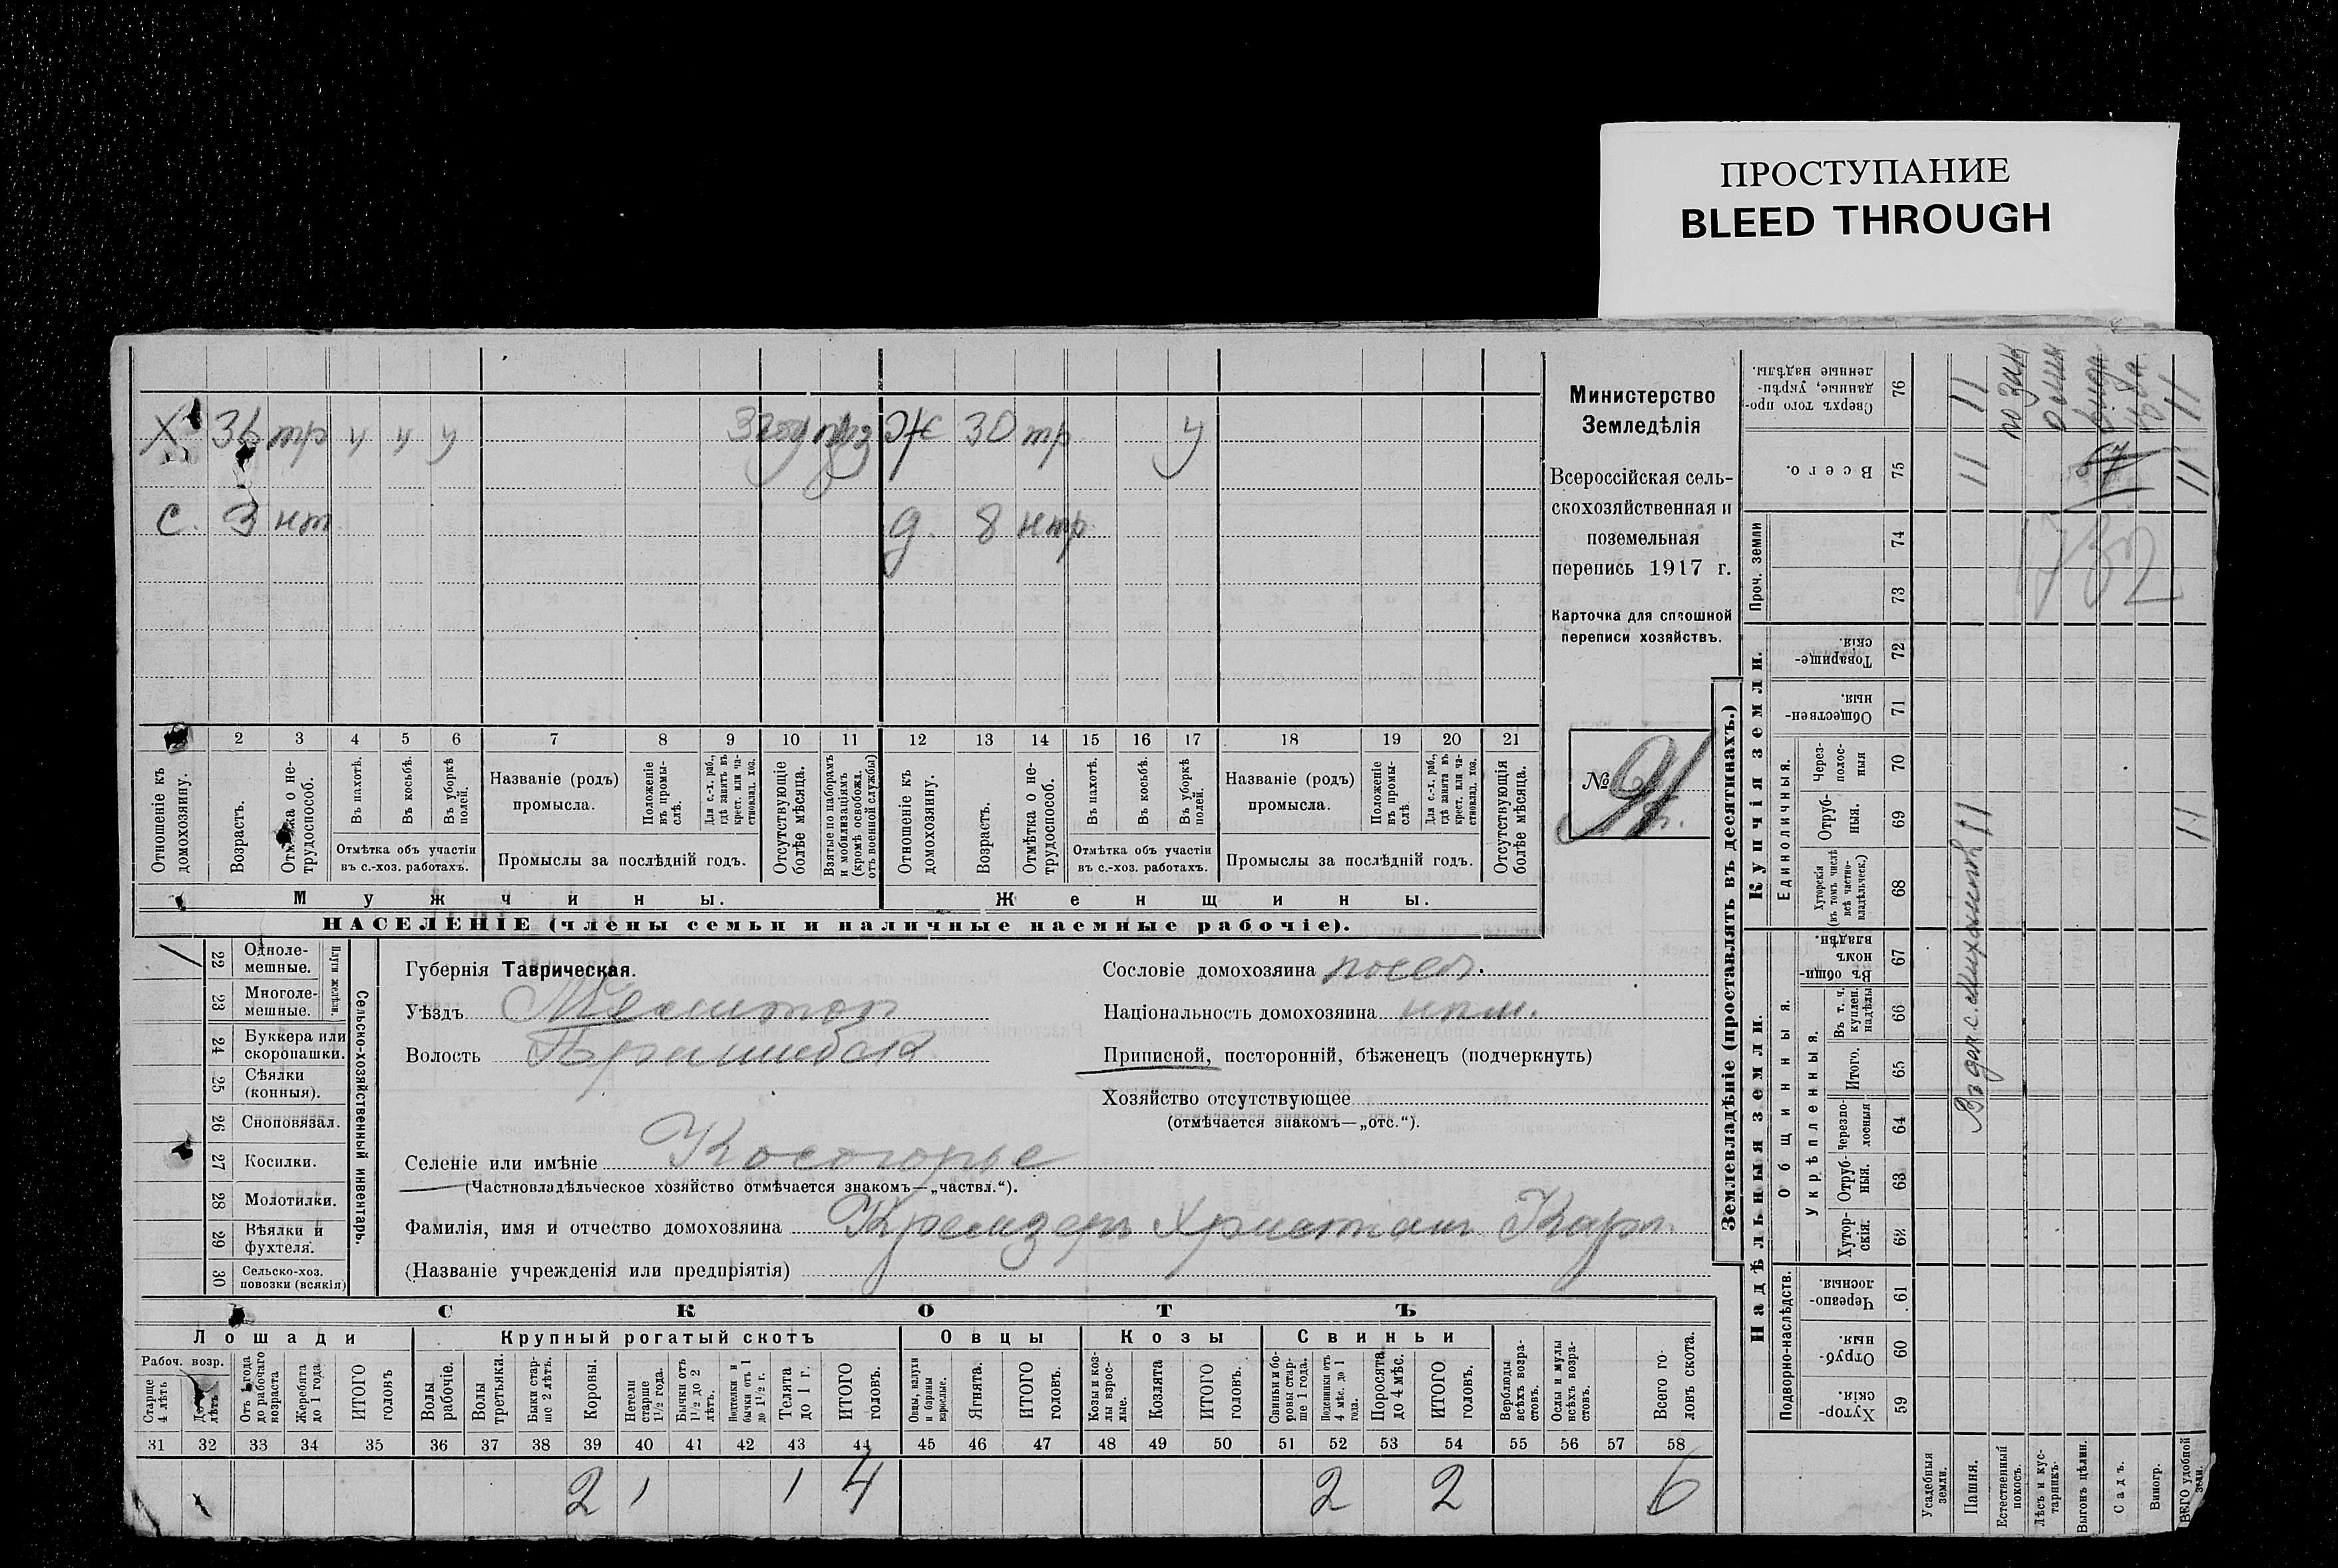 ПРОСТУПАНИЕ
BLEED THROUGH
Х 36 тр ч ч у Ж 30 тр у
С. 3 нт д. 8 нтр
1 2 3 4 5 6 7 8 9 10 11 12 13 14 15 16 17 18 19 20 21
Отношеніе къ домохозяину.
Возрастъ.
Отмѣтка о не-трудоспособ.
Въ пахотѣ.
Въ косьбѣ.
Въ уборкѣ полей.
Отмѣтка объ участіи
въ с.-хоз. работахъ.
Названіе (родъ)
промысла.
Положеніе въ промы-слѣ.
Для с.-х. раб., гдѣ заняты въ крест. или ча-стновлад. хоз.
Промыслы за послѣдній годъ.
Отсутствующіе болѣе мѣсяца.
Взятые по наборамъ и мобилизаціямъ (кромѣ освобожд. отъ военной службы)
Отношеніе къ домохозяину.
Возрастъ.
Отмѣтка о не-трудоспособ.
Въ пахотѣ.
Въ косьбѣ.
Въ уборкѣ полей.
Отмѣтка объ участіи
въ с.-хоз. работахъ.
Названіе (родъ)
промысла.
Положеніе въ промы-слѣ.
Для с.-х. раб., гдѣ занята въ крест. или ча-стновлад. хоз.
Промыслы за послѣдній годъ.
Отсутствующія болѣе мѣсяца.
Мужчины. Женщины.
НАСЕЛЕНІЕ (члены семьи и наличные наемные рабочіе).
Министерство
Земледѣлія
Всероссійская сель-
скохозяйственная и
поземельная
перепись 1917 г.
Карточка для сплошной
переписи хозяйствъ.
№ 91
22 Одноле-мешные.
23 Многоле-мешные.
Плуги желѣзн.
24 Буккера или скоропашки.
25 Сѣялки (конныя).
26 Сноповязал.
27 Косилки.
28 Молотилки.
29 Вѣялки и фухтеля.
30 Сельско-хоз. повозки (всякія)
Сельско-хозяйственный инвентарь.
Губернія Таврическая.
Уѣздъ
Волость
Селеніе или имѣніе Косогорье
(Частновладѣльческое хозяйство отмѣчается знакомъ—„частвл.“).
Фамилія, имя и отчество домохозяина Кремзеръ Христіан Карл.
(Названіе учрежденія или предпріятія)
Сословіе домохозяина посел.
Національность домохозяина нѣм.
Приписной, посторонній, бѣженецъ (подчеркнуть)
Хозяйство отсутствующее
(отмѣчается знакомъ—„отс.“).
СКОТЪ
Лошади Крупный рогатый скотъ Овцы Козы Свиньи
Рабоч. возр.
Старше 4 лѣтъ
До 4 лѣтъ
Отъ 1 года до рабочаго возраста
Жеребята до 1 года
ИТОГО головъ
Волы рабочіе.
Волы третьяки.
Быки стар-ше 2 лѣтъ.
Коровы.
Нетели старше 1½ года.
Бычки отъ 1½ до 2 лѣтъ.
Подтелки и бычки отъ 1 до 1½ г.
Телята до 1 г.
ИТОГО головъ.
Овцы, валухи и бараны взрослые.
Ягнята.
ИТОГО головъ.
Козы и коз-лы взрос-лые.
Козлята
ИТОГО головъ.
Свиньи и бо-ровы стар-ше 1 года.
Подсвинки отъ 4 мѣс. до 1 года.
Поросята до 4 мѣс.
ИТОГО головъ.
Верблюды всѣхъ возра-стовъ.
Ослы и мулы всѣхъ возра-стовъ.
Всего го-ловъ скота.
31 32 33 34 35 36 37 38 39 40 41 42 43 44 45 46 47 48 49 50 51 52 53 54 55 56 57 58
2 1 1 4 2 2 6
Землевладѣніе (проставлять въ десятинахъ.)
Надѣльныя земли. Купчія земли.
Подворно-наслѣдств.
Общинныя.
Укрѣпленныя.
Единоличныя.
Проч. земли
Хутор-скія. 59
Отруб-ныя. 60
Черезпо-лосныя 61
Хутор-скія. 62
Отруб-ныя. 63
Черезпо-лосныя 64
Итого. 65
Въ т. ч. куплен. надѣлы 66
Въ общи-номъ владѣн. 67
Хуторскія (въ томъ числѣ всѣ частно-владѣльческ.) 68
Отруб-ныя. 69
Через-полос-ныя 70
Обществен-ныя. 71
Товарище-скія. 72
73
74
Всего. 75
Сверхъ того про-данные, укрѣп-ленные надѣлы. 76
Усадебныя земли.
Пашня.
Естественный покосъ.
Лѣсъ и кус-тарникъ.
Выгонъ цѣлин.
Садъ.
Виногр.
ВСЕГО удобной земли.
11 11 11
11 11 11